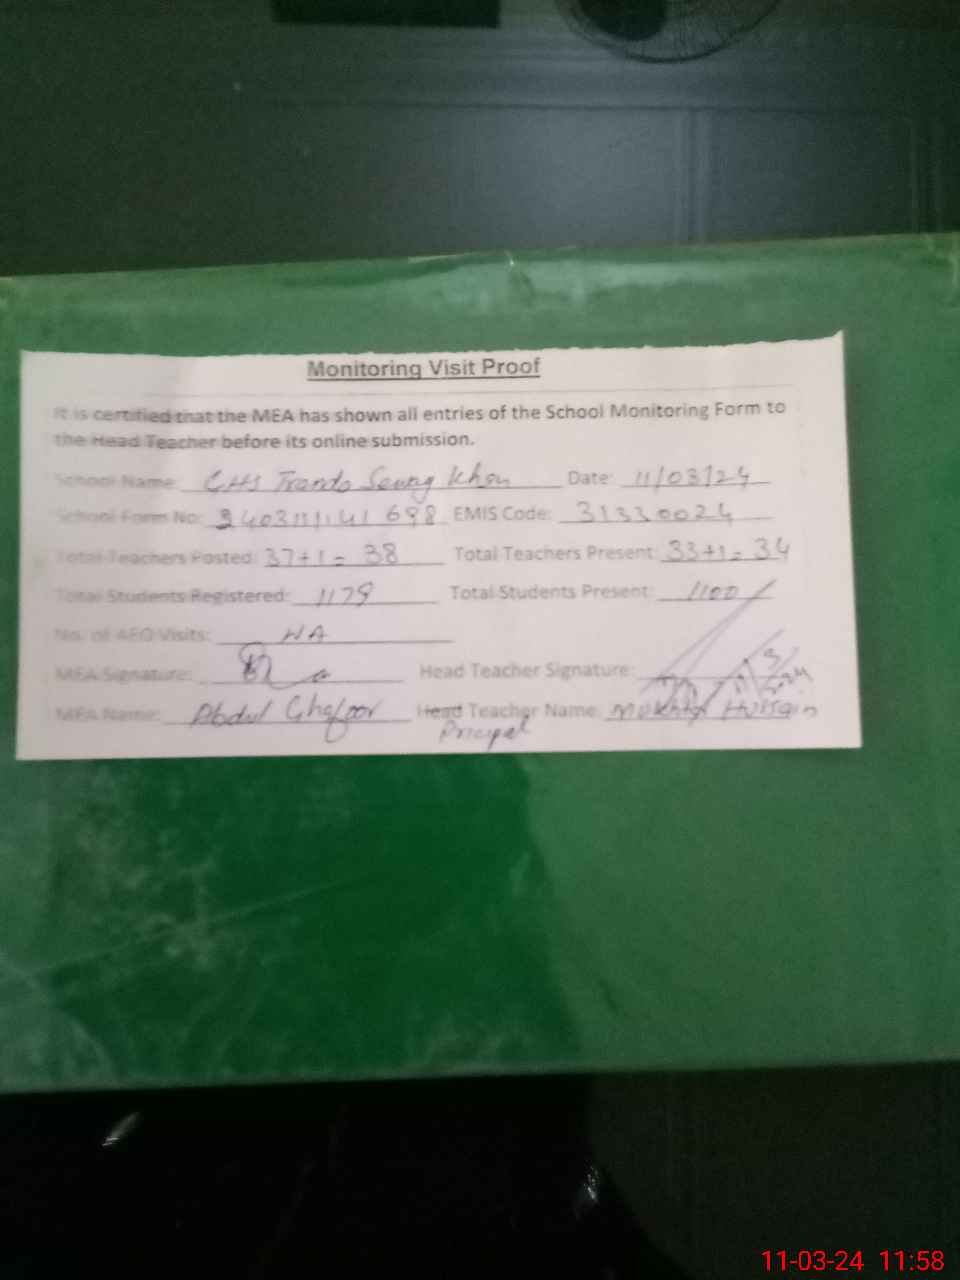 Monitoring Visit Proof
It is certified that the MEA has shown all entries of the School Monitoring Form to
the Head Teacher before its online submission.
School Name: GHS Khan Date: 11/03/24
School Form No: EMIS Code: 31330024
Total Teachers Posted: 37+1 = 38 Total Teachers Present: 33+1 = 34
Total Students Registered: 1179 Total Students Present: 1100
No. of AEO Visits: NA
MEA Signature: Head Teacher Signature:
MEA Name: Abdul Ghafoor Head Teacher Name: Hussain
11-03-24 11:58